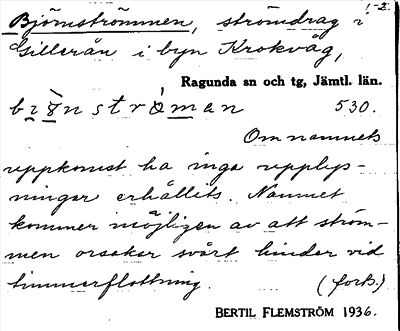 1-2.
Björnströmmen, strömdrag i
Gillerån i byn Krokvåg,
Ragunda sn och tg, Jämtl. län.
530.
Om namnets
uppkomst ha inga upplys-
ningar erhållits. Namnet
kommer möjligen av att ström-
men orsakar svårt hinder vid
timmerflottning. (forts.)
BERTIL FLEMSTRÖM 1936.